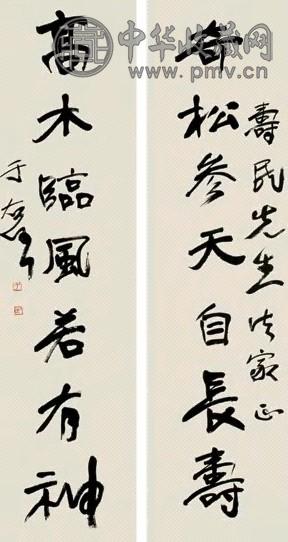 壽民先生法家正
奇松參天自長壽
高木臨風若有神
于右任
中华收藏网
www.pmv.cn